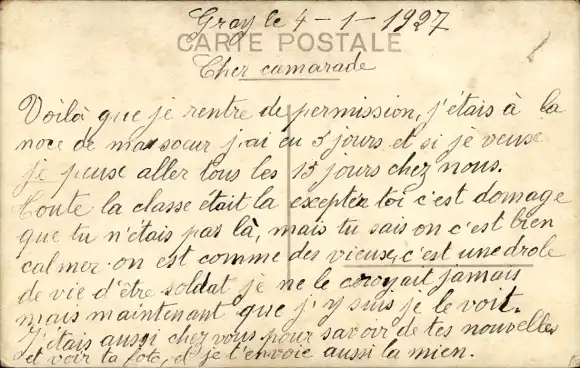 Gray le 4-1-1927
CARTE POSTALE
Cher camarade
Voilà que je rentre de permission, j'étais à la
noce de ma sœur j'ai eu 5 jours et si je veux
je peuse aller tous les 15 jours chez nous.
Toute la classe était la exceptée toi c'est domage
que tu n'étais pas là, mais tu sais on c'est bien
calmer on est comme des vieux, c'est une drole
de vie d'être soldat je ne le croyait jamais
mais maintenant que j'y suis je le voit.
J'étais aussi chez vous pour savoir de tes nouvelles
et voir ta foto, et je t'envoie aussi la mien.